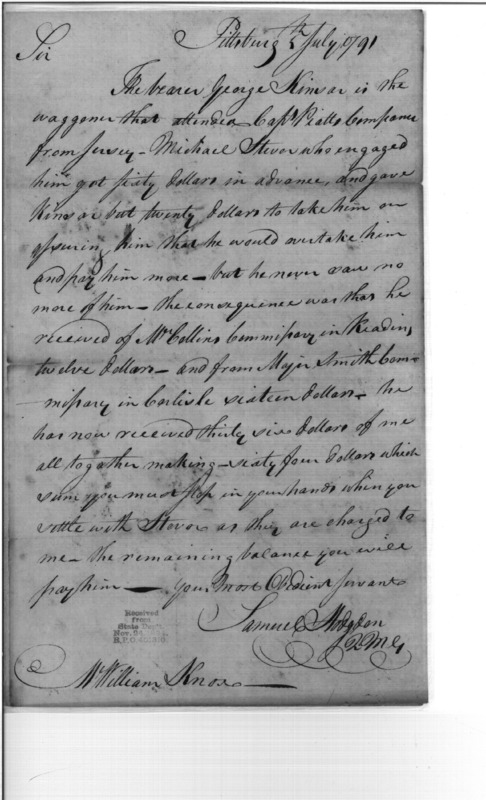 Pittsburg 5th July 1791
Sir
The bearer George Kinsar is the
waggoner that attended Capt Piatts Company
from Jersey - Michael Stever who engaged
him got sixty dollars in advance, and gave
Kinsar but twenty dollars to take him on
assuring him that he would overtake him
and pay him more - but he never saw no
more of him - the consequence was that he
received of Mr Collins Commissary in Reading
twelve dollars - and from Major Smith Com-
-missary in Carlisle sixteen dollars - he
has now received thirty six dollars of me
all together making - sixty four dollars which
sum you must stop in your hands when you
settle with Stever as they are charged to
me - the remaining balance you will
pay him — your most Obedient servant
Samuel Hodgdon
QMG
Received
from
State Dept.
Nov. 24,
Mr William Knox —